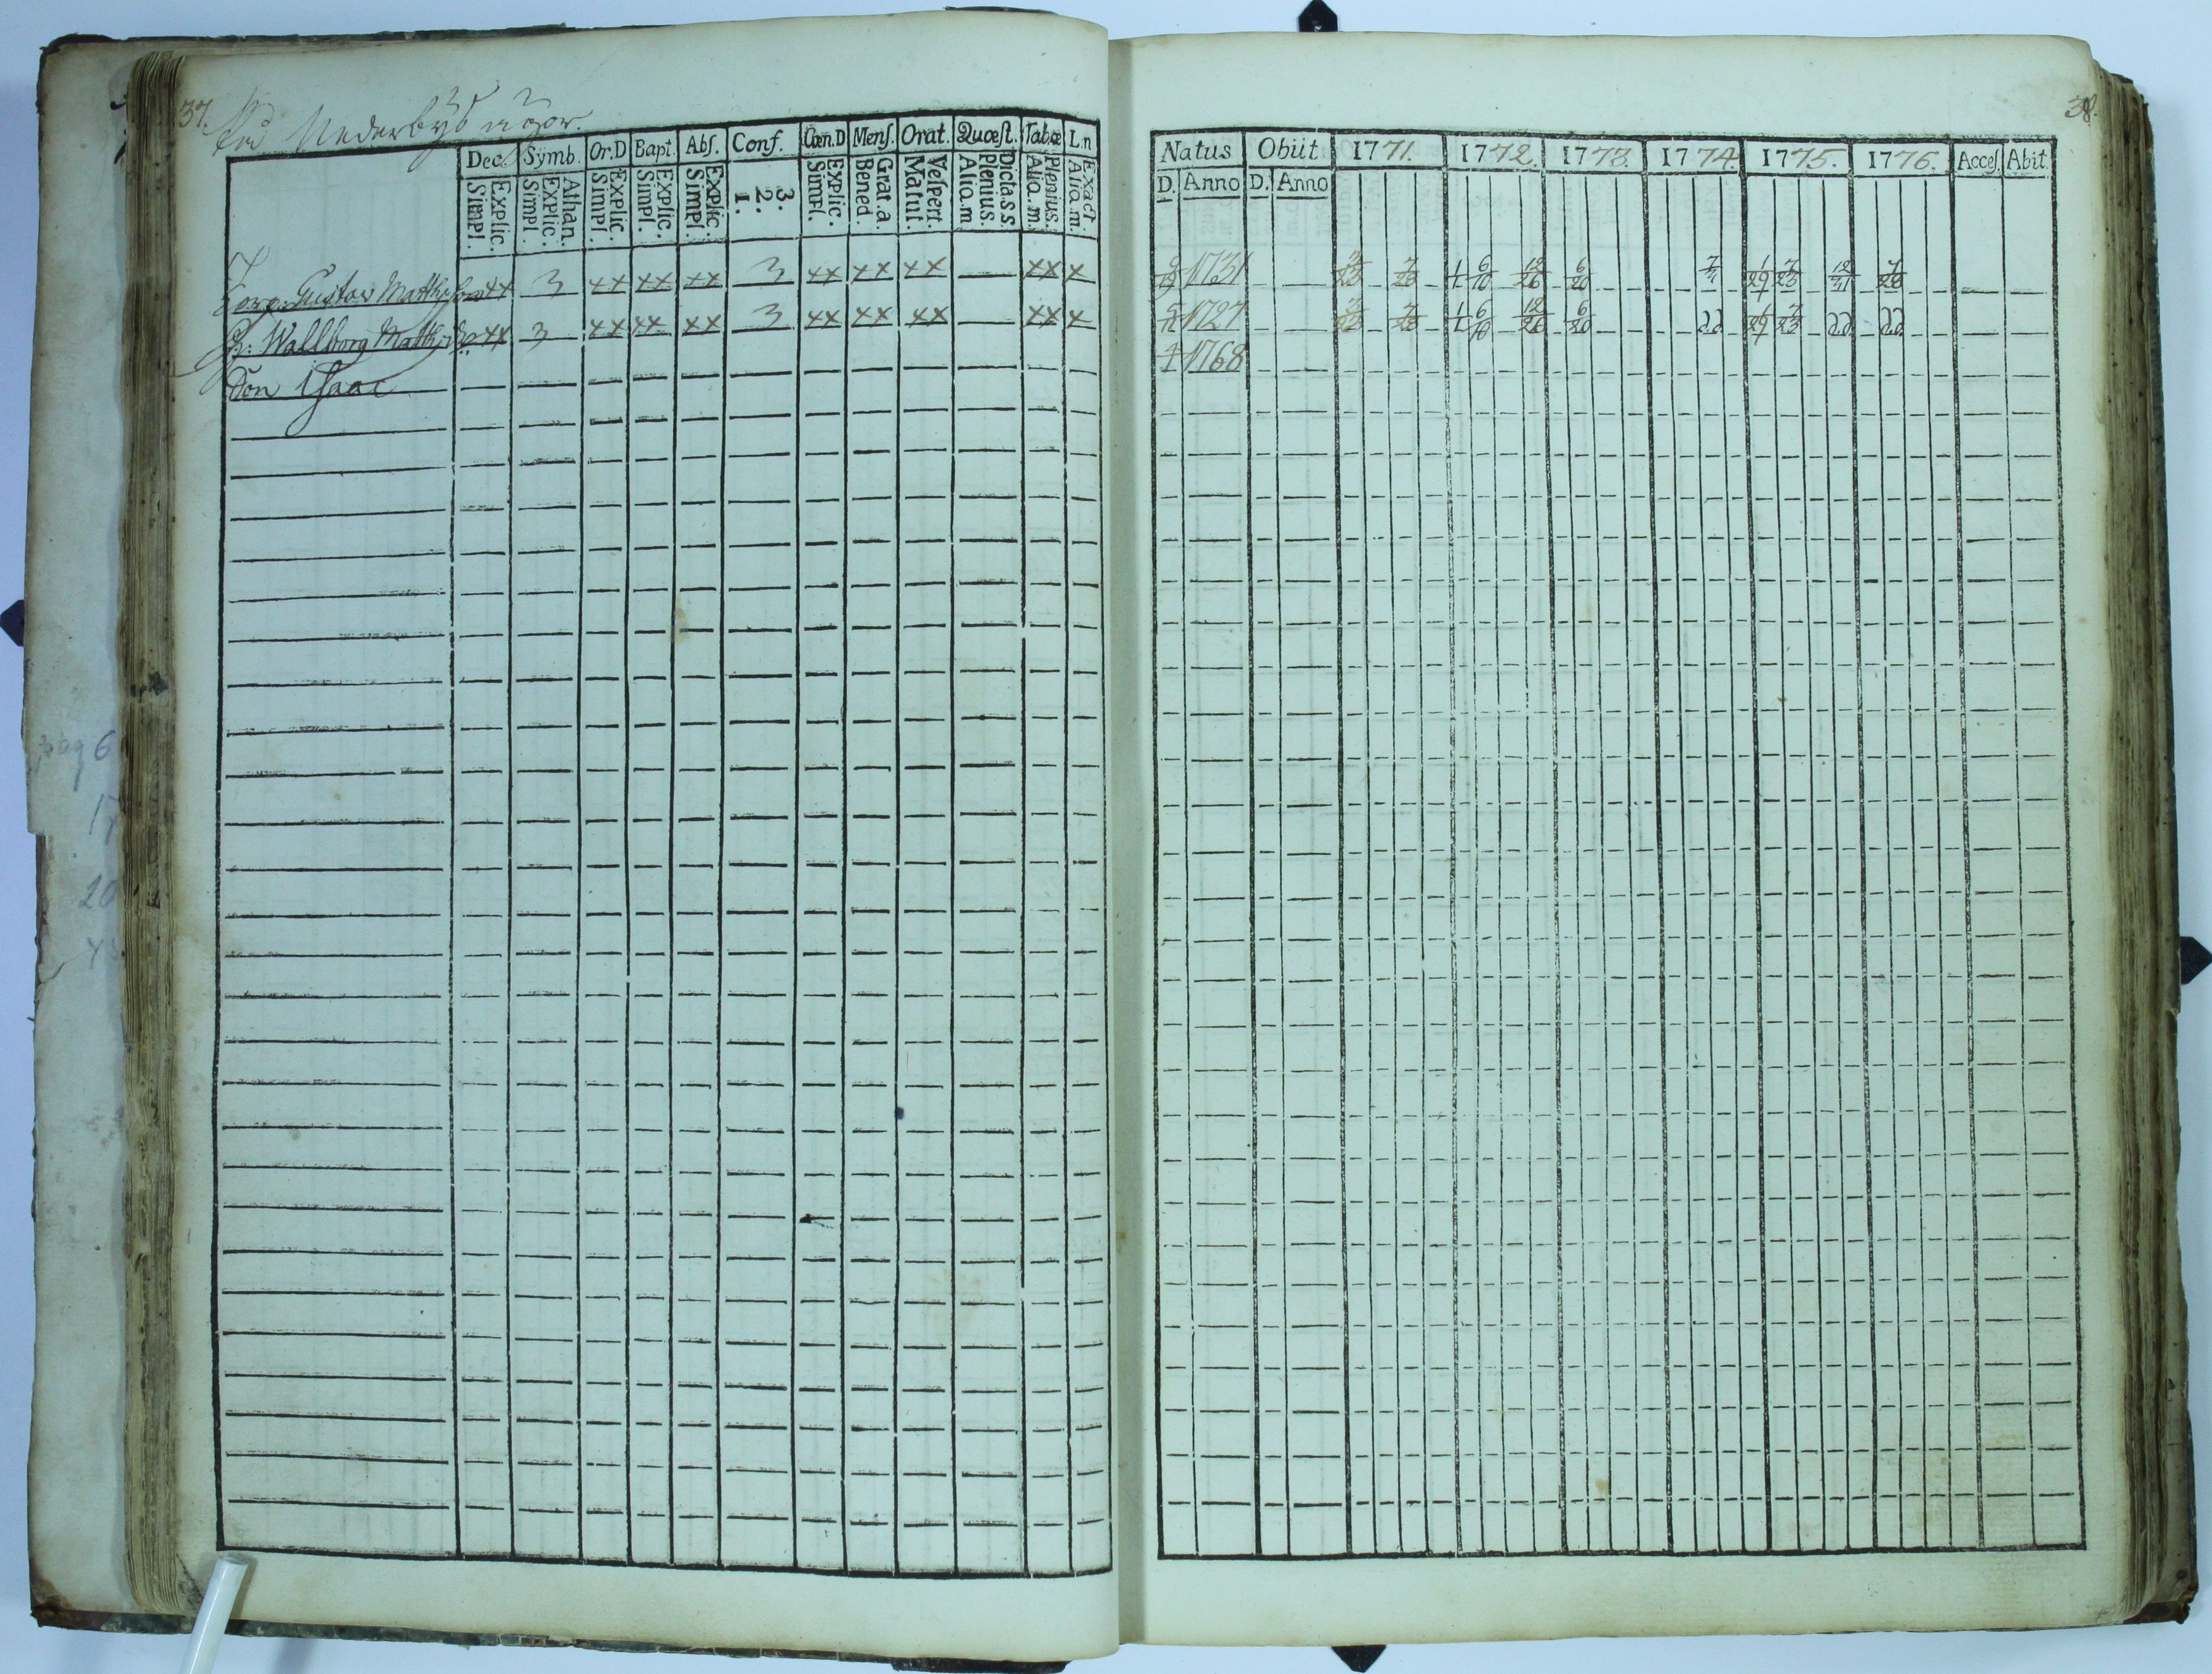 37.
Nederbÿs ägor.
Dec. Symb. Or.D Bapt. Abſ. Conf. Cœn.D Menſ. Orat. Quæſt. Tabæ L.n
Explic. Simpl. Athan. Explic. Simpl. Explic. Simpl. Explic. Simpl. Explic. Simpl. 3. 2. 1. Explic. Simpl. Grat.a. Bened. Veſpert. Matut. Dicta.s.s. Plenius. Alio.m Plenius. Alio.m. Exact. Alio.m.
Torp. Gustav Matthsson xx 3 xx xx xx 3 xx xx xx xx x
H: Wallborg Matth:dr xx 3 xx xx xx 3 xx xx xx xx x
Son Isaac
pag 6
17
20
38.
Natus Obiit 1771. 1772. 1773. 1774. 1775. 1776. Acceſ. Abit.
D. Anno D. Anno
1731 3/23 7/28 1/1 6/10 12/26 6/20 7/3 1/29 7/23 12/31 7/28
1727 3/23 7/28 1/1 6/10 12/26 6/20 dd 1/29 7/23 dd dd
1768